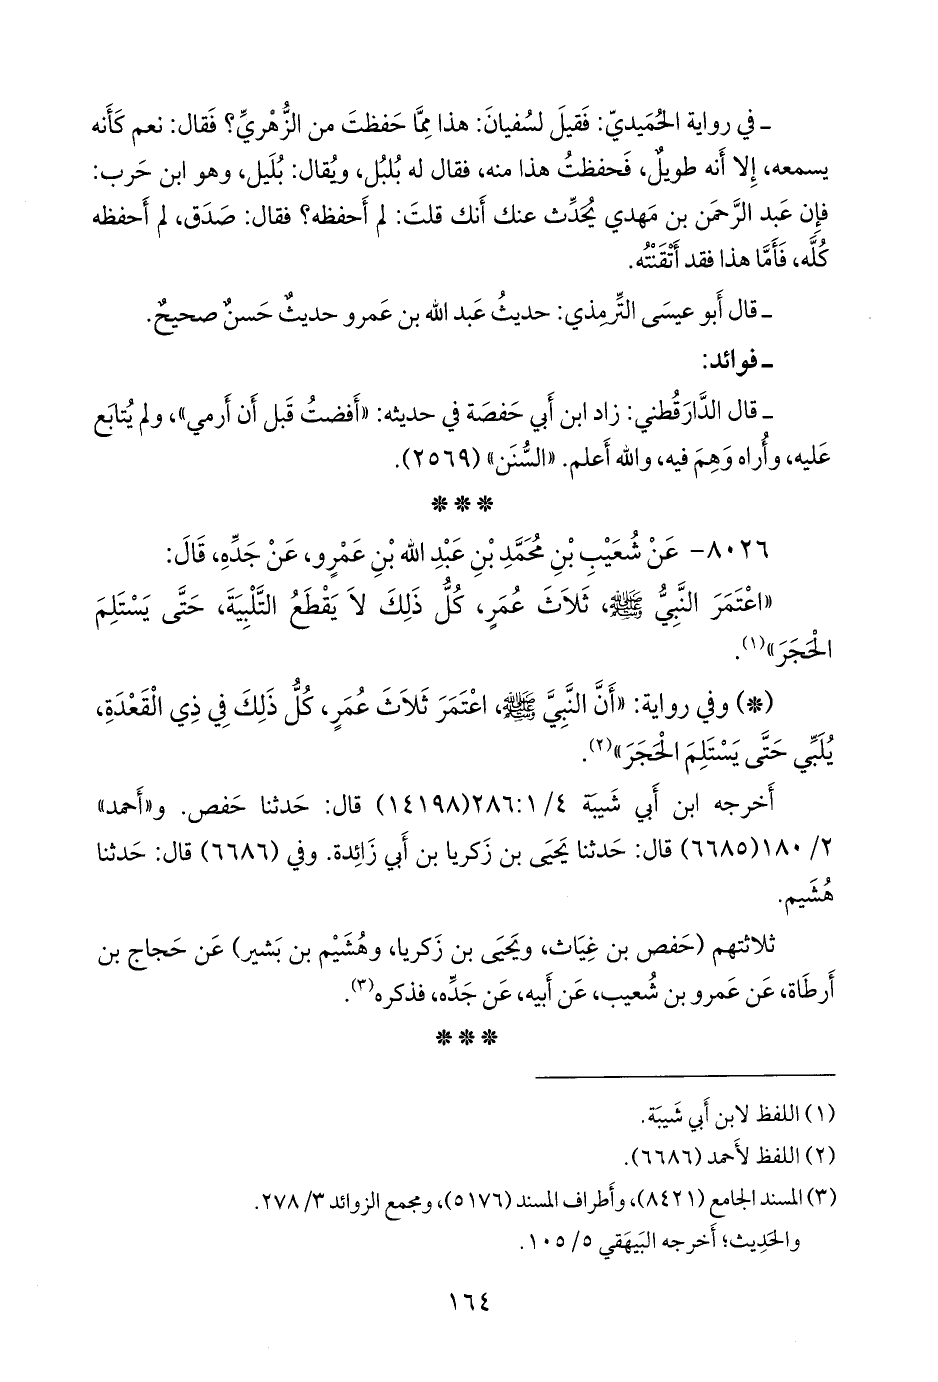 ـ في رواية الحُمَيديّ: فَقيلَ لسُفيانَ: هذا مِمَّا حَفظتَ من الزُّهْريِّ؟ فَقال: نعم كَأَنه
يسمعه، إِلا أَنه طويلٌ، فَحفظتُ هذا منه، فقال له بُلبُل، ويُقال: بُلَيل، وهو ابن حَرب:
فإِن عَبد الرَّحمَن بن مَهدي يُحَدِّث عنك أَنك قلتَ: لم أَحفظه؟ فقال: صَدَق، لم أَحفظه
كُلَّه، فَأَمَّا هذا فقد أَتْقَنْتُه.
ـ قال أَبو عيسَى التِّرمِذي: حديثُ عَبد الله بن عَمرو حديثٌ حَسنٌ صحيحٌ.
ـ فوائد:
ـ قال الدَّارَقُطني: زاد ابن أَبي حَفصَة في حديثه: «أَفضتُ قَبل أَن أَرمي»، ولم يُتابَع
عَليه، وأُراه وَهِمَ فيه، والله أَعلم. «السُّنَن» (٢٥٦٩).
* * *
٨٠٢٦- عَنْ شُعَيْبِ بْنِ مُحَمَّدِ بْنِ عَبْدِ الله بْنِ عَمْرٍو، عَنْ جَدِّهِ، قَالَ:
«اعْتَمَرَ النَّبِيُّ ﷺ، ثَلاَثَ عُمَرٍ، كُلُّ ذَلِكَ لاَ يَقْطَعُ التَّلْبِيَةَ، حَتَّى يَسْتَلِمَ
الْحَجَرَ»(١).
(*) وفي رواية: «أَنَّ النَّبِيَّ ﷺ، اعْتَمَرَ ثَلاَثَ عُمَرٍ، كُلُّ ذَلِكَ فِي ذِي الْقَعْدَةِ،
يُلَبِّي حَتَّى يَسْتَلِمَ الْحَجَرَ»(٢).
أَخرجه ابن أَبي شَيبَة ٤/ ٢٨٦:١(١٤١٩٨) قال: حَدثنا حَفص. و«أَحمد»
٢/ ١٨٠(٦٦٨٥) قال: حَدثنا يَحيَى بن زَكريا بن أَبي زَائِدة. وفي (٦٦٨٦) قال: حَدثنا
هُشَيم.
ثلاثتهم (حَفص بن غِيَاث، ويَحيَى بن زَكريا، وهُشَيْم بن بَشير) عَن حَجاج بن
أَرطَاة، عَن عَمرو بن شُعيب، عَن أَبيه، عَن جَدِّه، فذكره(٣).
* * *
(١) اللفظ لابن أَبي شَيبَة.
(٢) اللفظ لأَحمد (٦٦٨٦).
(٣) المسند الجامع (٨٤٢١)، وأَطراف المسند (٥١٧٦)، ومجمع الزوائد ٣/ ٢٧٨.
والحَدِيث؛ أَخرجه البَيهَقي ٥/ ١٠٥.
١٦٤